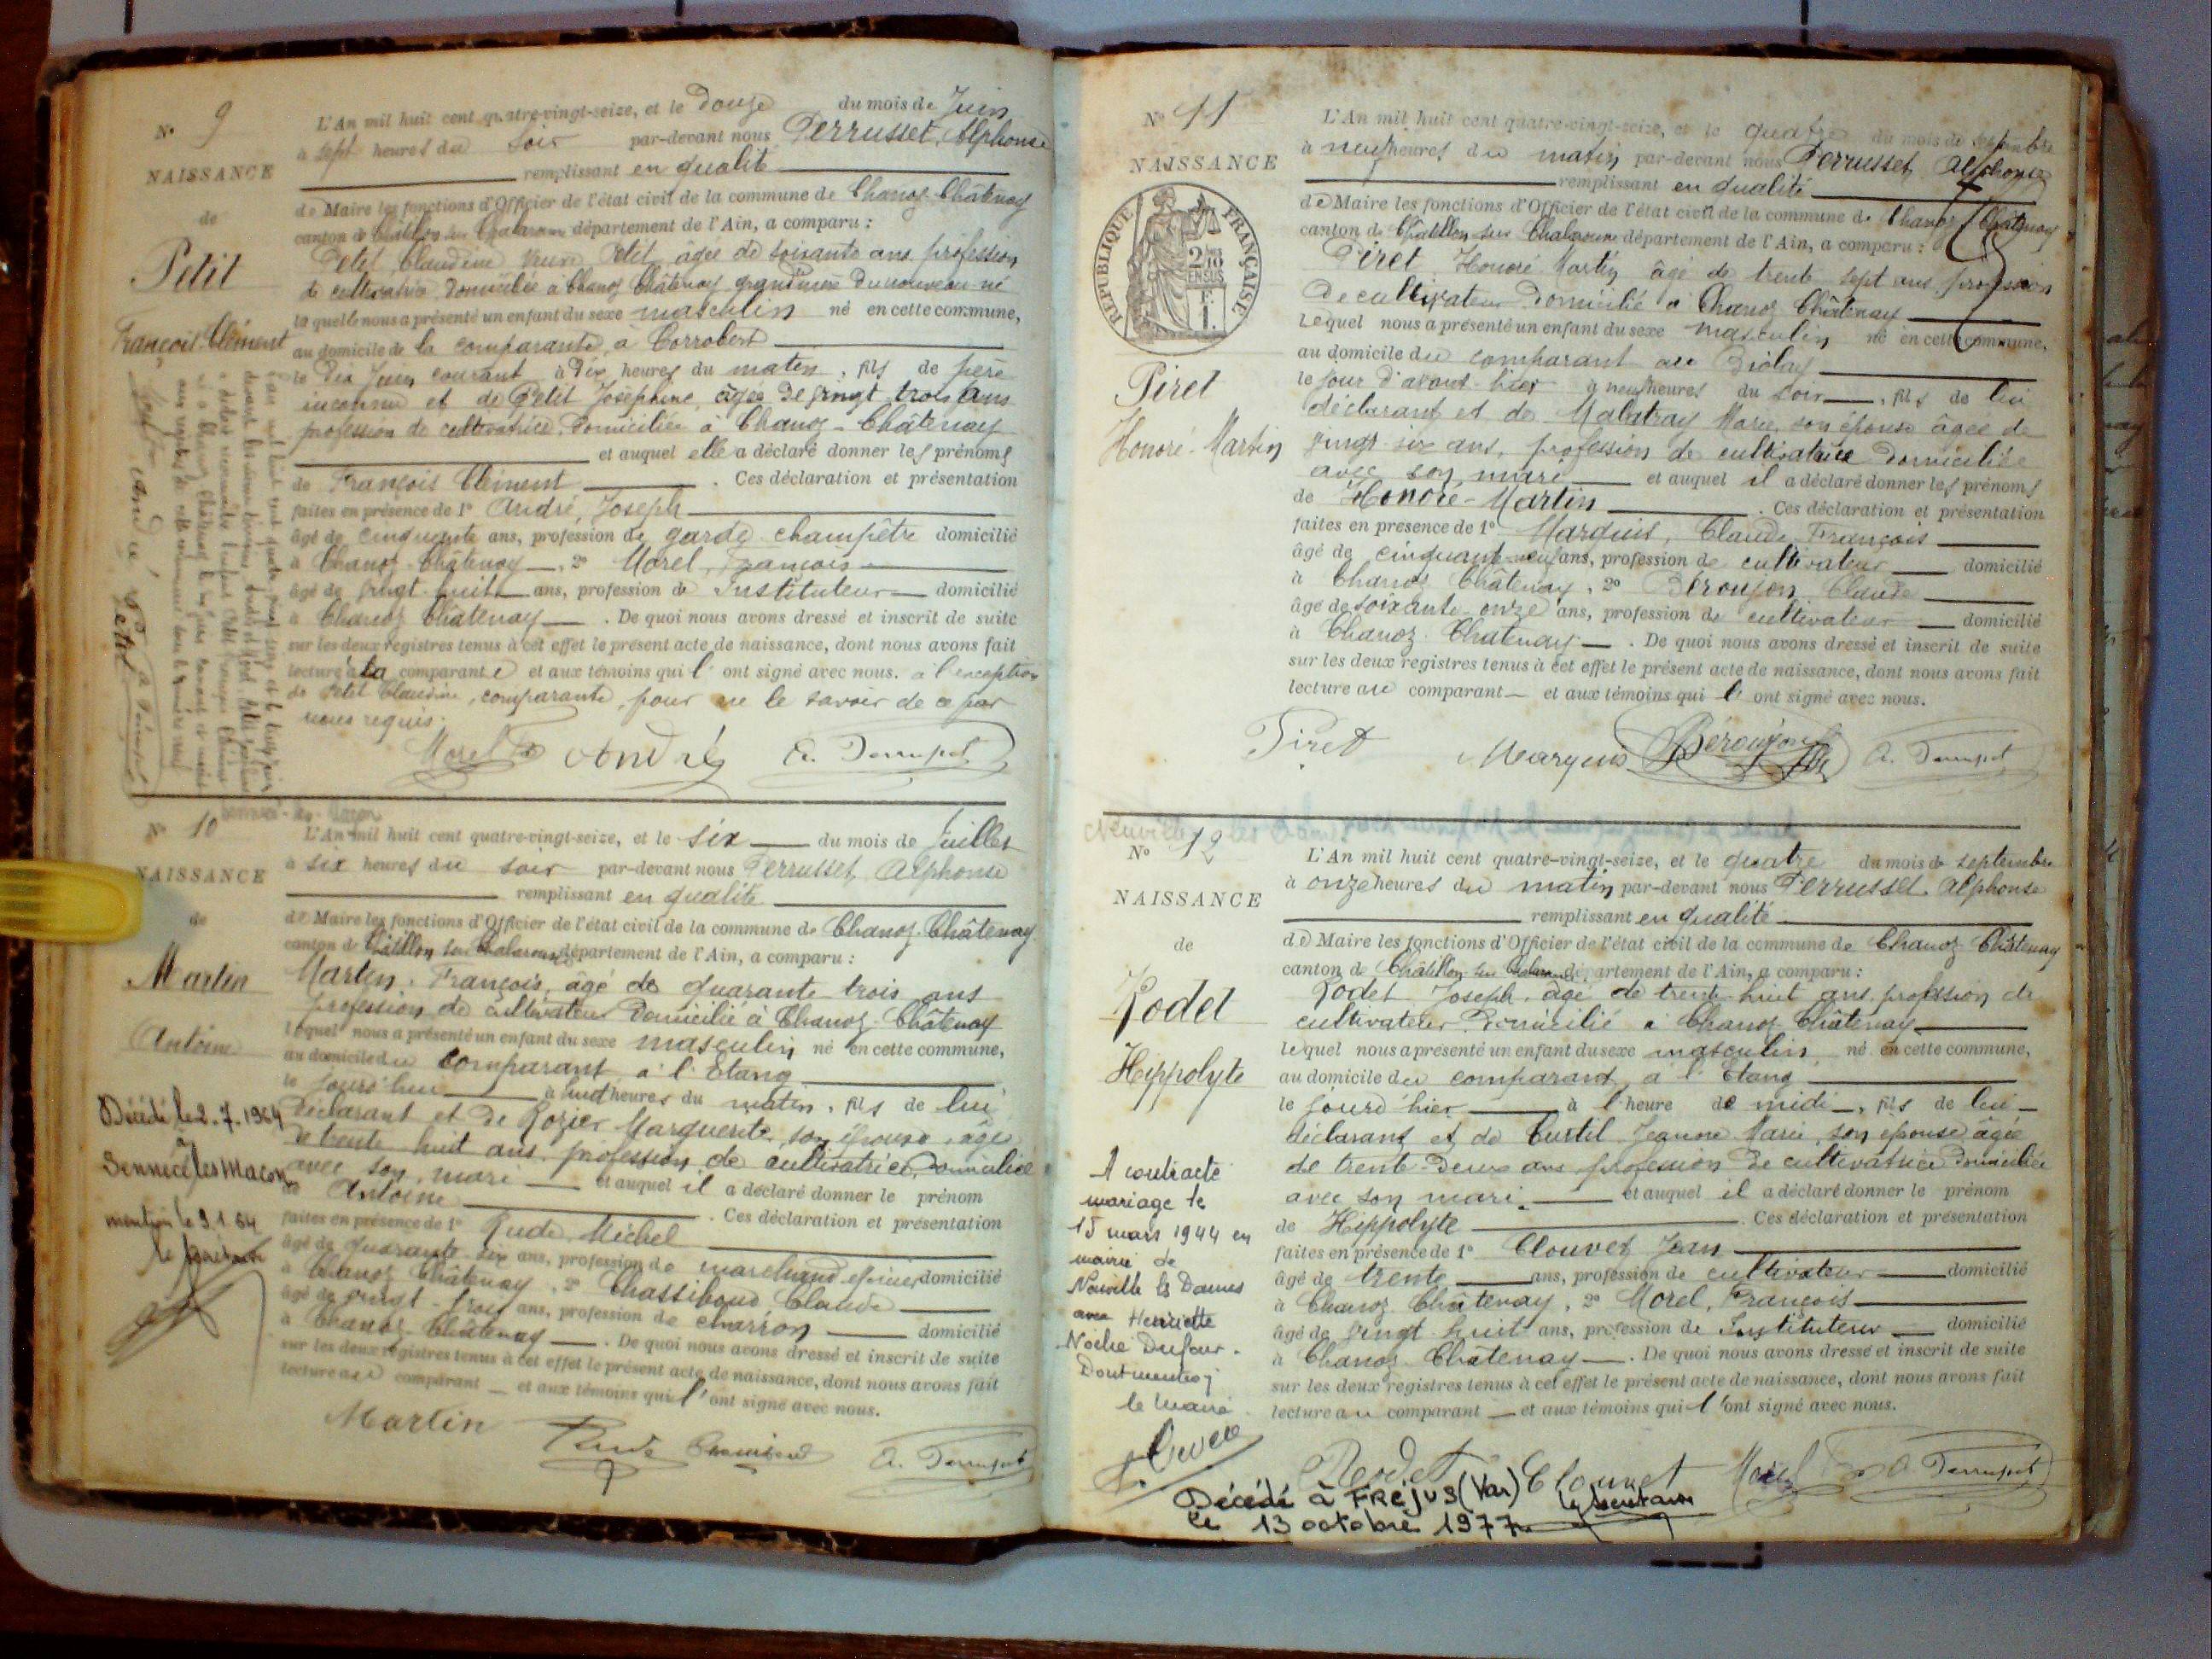 Nº 9
NAISSANCE
de
Petit
François Clément
L'An mil huit cent quatre-vingt-seize, et le Douze du mois de Juin
à sept heures du soir par-devant nous Perrusset, Alphonse
remplissant en qualité
de Maire les fonctions d'Officier de l'état civil de la commune de Chanoz-Châtenay
canton de Châtillon sur Chalaronne département de l'Ain, a comparu :
Petit Claudine veuve Petit âgée de soixante ans profession
de cultivatrice domiciliée à Chanoz Châtenay grand'mère du nouveau-né
laquelle nous a présenté un enfant du sexe masculin né en cette commune,
au domicile de la comparante, à Corrobert
le dix Juin courant à dix heures du matin, fils de père
inconnu et de Petit Joséphine, âgée de vingt trois ans
profession de cultivatrice, domiciliée à Chanoz-Châtenay
et auquel elle a déclaré donner les prénoms
de François Clément . Ces déclaration et présentation
faites en présence de 1º André, Joseph
âgé de cinquante ans, profession de garde champêtre domicilié
à Chanoz-Châtenay, 2º Morel, François
âgé de vingt-huit ans, profession de Instituteur domicilié
à Chanoz Châtenay . De quoi nous avons dressé et inscrit de suite
sur les deux registres tenus à cet effet le présent acte de naissance, dont nous avons fait
lecture à la comparante et aux témoins qui l'ont signé avec nous. à l'exception
de Petit Claudine, comparante, pour ne le savoir de ce par
nous requis.
Morel Fs André A. Perrusset
Nº 10
NAISSANCE
de
Martin
Antoine
Décédé le 2.7.1964
à
Sennecé les Macon
mention le
L'An mil huit cent quatre-vingt-seize, et le six du mois de Juillet
à six heures du soir par-devant nous Perrusset, Alphonse
remplissant en qualité
de Maire les fonctions d'Officier de l'état civil de la commune de Chanoz-Châtenay
canton de Châtillon sur Chalaronne département de l'Ain, a comparu :
Martin, François, âgé de quarante trois ans
profession de cultivateur domicilié à Chanoz-Châtenay
lequel nous a présenté un enfant du sexe masculin né en cette commune,
au domicile du comparant à l'Etang
le jourd'hui à huit heures du matin, fils de lui
déclarant et de Rozier Marguerite, son épouse âgée
de trente huit ans profession de cultivatrice, domiciliée
avec son mari et auquel il a déclaré donner le prénom
de Antoine . Ces déclaration et présentation
faites en présence de 1º Rude, Michel
âgé de quarante-six ans, profession de marchand épicier, domicilié
à Chanoz Châtenay, 2º Chassiboud Claude
âgé de vingt-trois ans, profession de charron domicilié
à Chanoz-Châtenay . De quoi nous avons dressé et inscrit de suite
sur les deux registres tenus à cet effet le présent acte de naissance, dont nous avons fait
lecture au comparant et aux témoins qui l'ont signé avec nous.
Martin Rude A. Perrusset
Nº 11
NAISSANCE
RÉPUBLIQUE FRANÇAISE
2/10 EN SUS
Piret
Honoré-Martin
L'An mil huit cent quatre-vingt-seize, et le quatre du mois de septembre
à neuf heures du matin par-devant nous Perrusset, Alphonse
remplissant en qualité
de Maire les fonctions d'Officier de l'état civil de la commune de Chanoz Châtenay
canton de Châtillon sur Chalaronne département de l'Ain, a comparu :
Piret Honoré-Martin âgé de trente sept ans profession
de cultivateur domicilié à Chanoz Châtenay
Lequel nous a présenté un enfant du sexe masculin né en cette commune,
au domicile du comparant au Biolay
le jour d'avant-hier à neuf heures du soir, fils de lui
déclarant et de Malatray Marie, son épouse âgée de
vingt six ans, profession de cultivatrice domiciliée
avec son mari et auquel il a déclaré donner les prénoms
de Honoré-Martin . Ces déclaration et présentation
faites en présence de 1º Marquis, Claude François
âgé de cinquante-neuf ans, profession de cultivateur domicilié
à Chanoz Châtenay, 2º Béroujon Claude
âgé de soixante-onze ans, profession de cultivateur domicilié
à Chanoz-Chatenay . De quoi nous avons dressé et inscrit de suite
sur les deux registres tenus à cet effet le présent acte de naissance, dont nous avons fait
lecture au comparant et aux témoins qui l'ont signé avec nous.
Piret Marquis Béroujon A. Perrusset
Nº 12
NAISSANCE
de
Rodet
Hippolyte
A contracté
mariage le
15 mars 1944 en
mairie de
Neuville les Dames
avec Henriette
Noëlie Dufour.
Dont mention
le maire
L'An mil huit cent quatre-vingt-seize, et le quatre du mois de septembre
à onze heures du matin par-devant nous Perrusset, Alphonse
remplissant en qualité
de Maire les fonctions d'Officier de l'état civil de la commune de Chanoz Châtenay
canton de Châtillon sur Chalaronne département de l'Ain, a comparu :
Rodet Joseph, âgé de trente-huit ans profession de
cultivateur domicilié à Chanoz-Châtenay
lequel nous a présenté un enfant du sexe masculin né en cette commune,
au domicile du comparant, à l'Etang
le jourd'hier à l'heure de midi, fils de lui
déclarant et de Curtil Jeanne Marie, son épouse âgée
de trente-deux ans profession de cultivatrice domiciliée
avec son mari. et auquel il a déclaré donner le prénom
de Hippolyte . Ces déclaration et présentation
faites en présence de 1º Clouvet Jean
âgé de trente ans, profession de cultivateur domicilié
à Chanoz Châtenay, 2º Morel, François
âgé de vingt-huit ans, profession de Instituteur domicilié
à Chanoz-Châtenay . De quoi nous avons dressé et inscrit de suite
sur les deux registres tenus à cet effet le présent acte de naissance, dont nous avons fait
lecture au comparant et aux témoins qui l'ont signé avec nous.
Rodet Clouvet Morel Fs A. Perrusset
Décédé à FREJUS (Var) le secretaire
le 13 octobre 1977